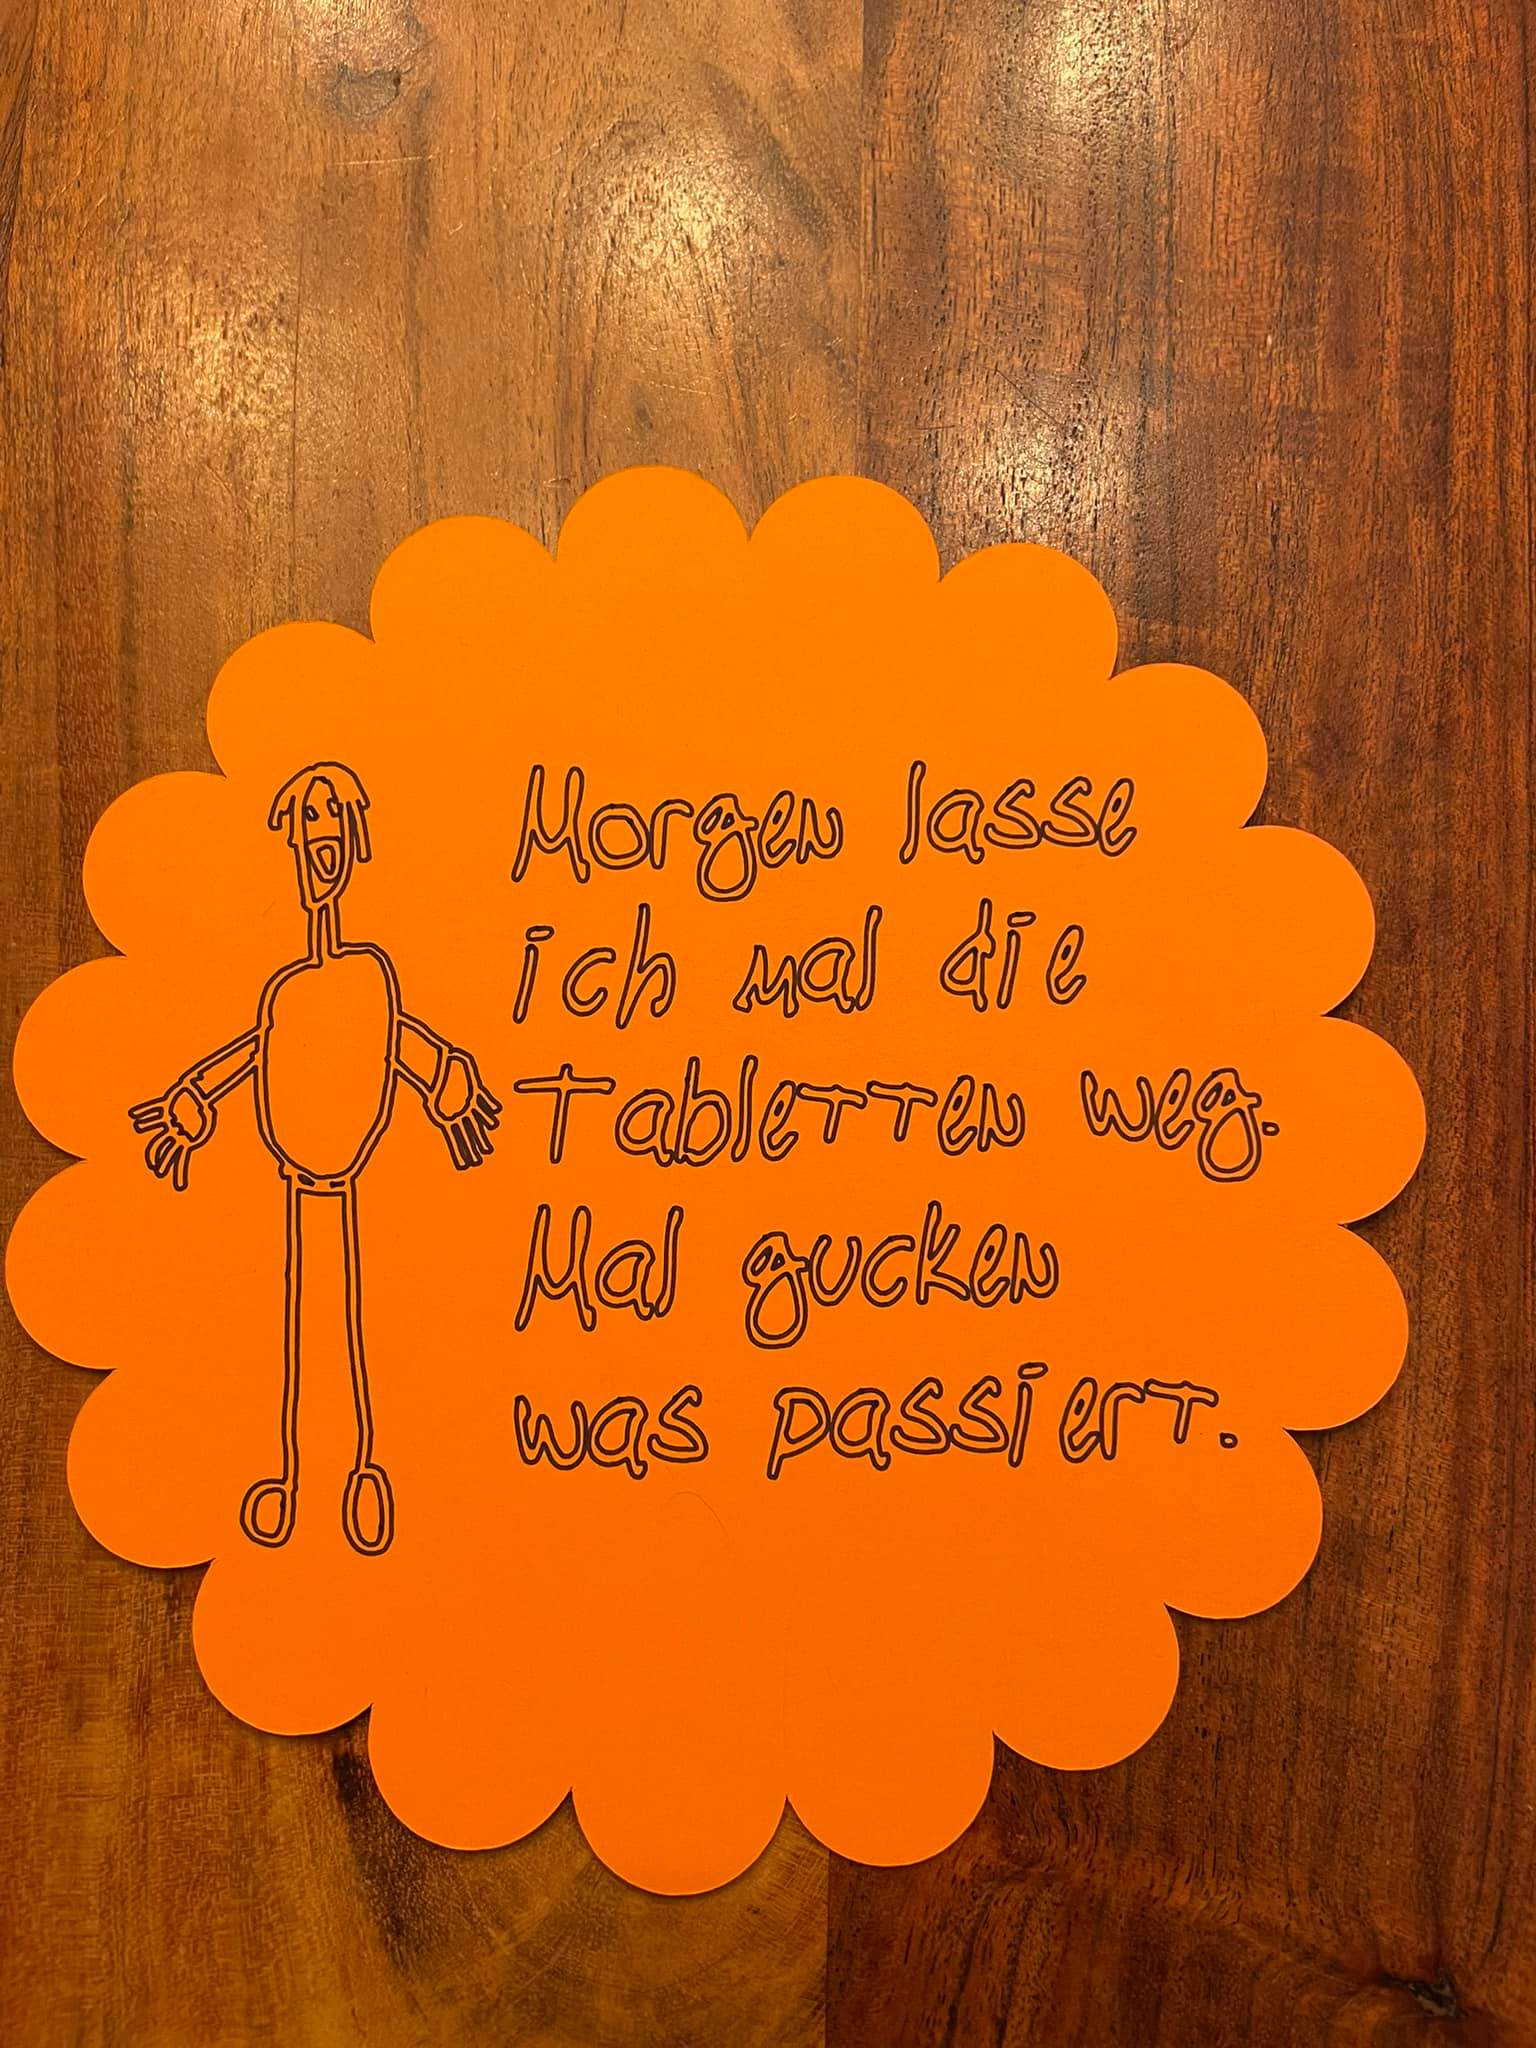 Morgen lasse
ich mal die
Tabletten weg.
Mal gucken
was passiert.